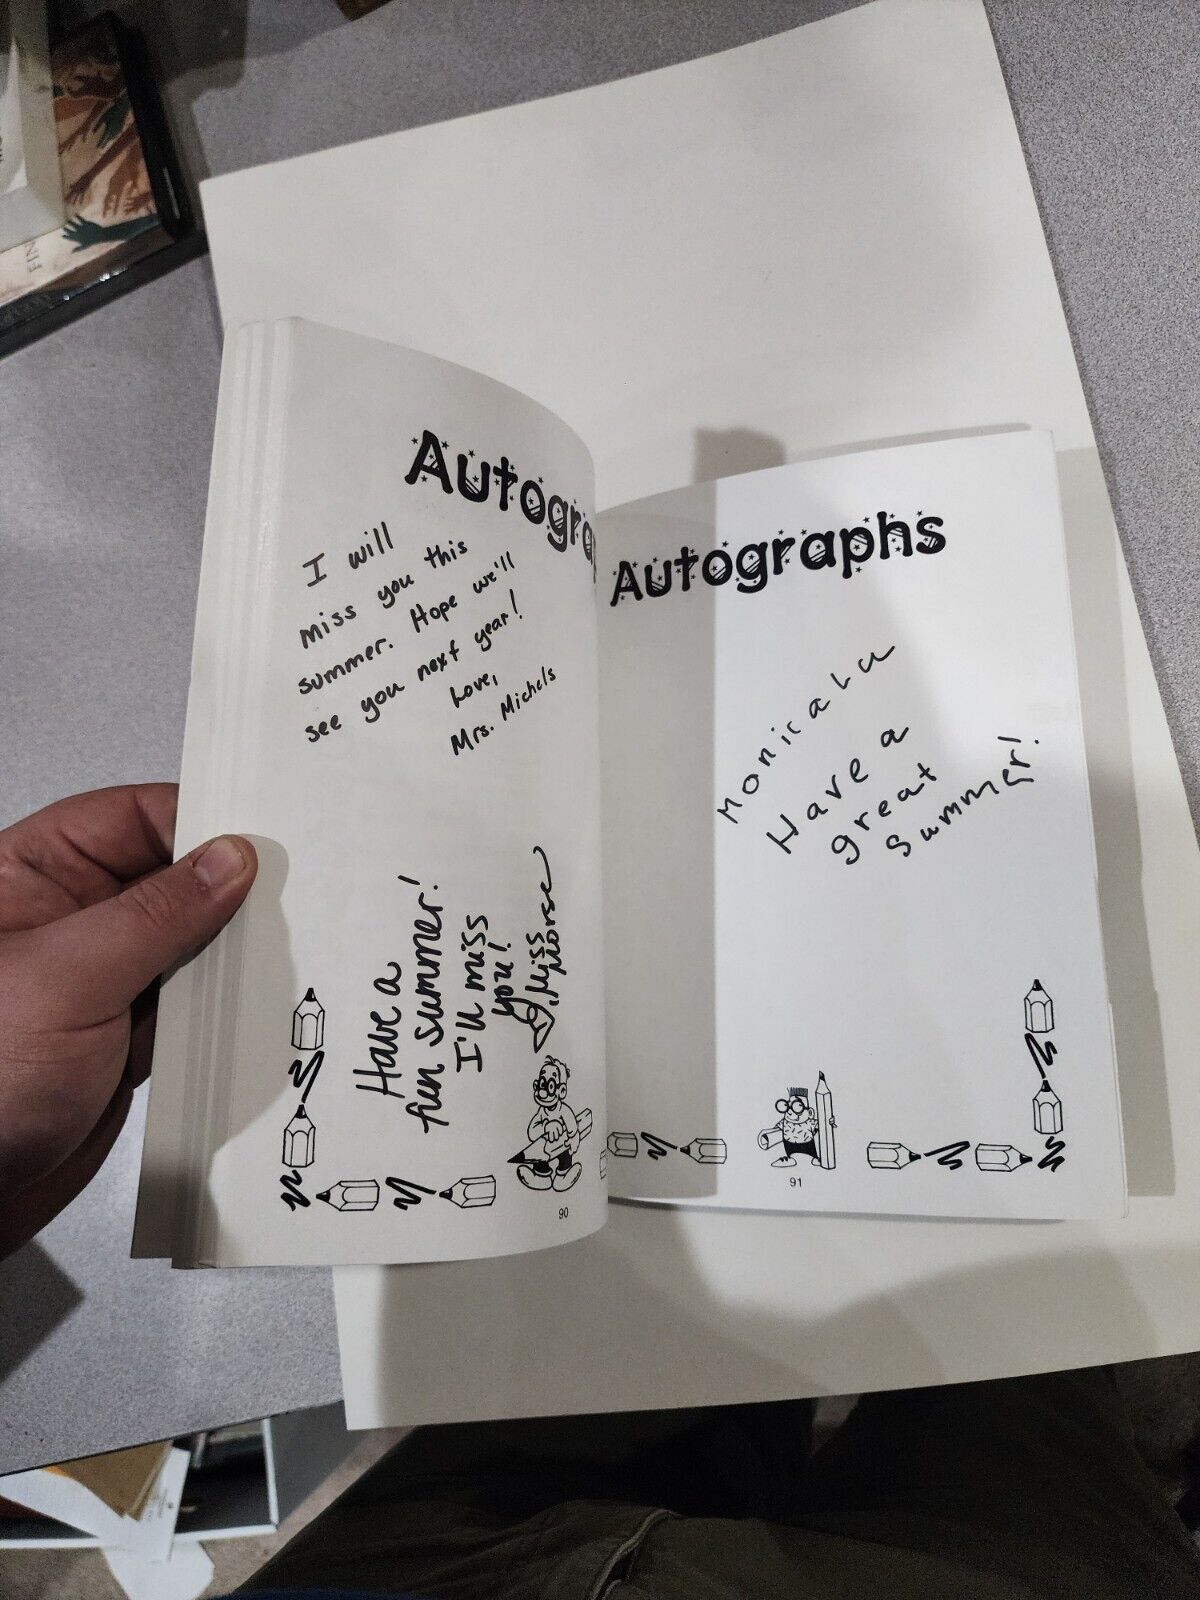 Autogra
I will
miss you this
summer. Hope we'll
see you next year!
Love,
Mrs. Michels
Have a
fun summer!
I'll miss
you!
Miss
Morse
90
Autographs
Monica La
Have a
great
Summer!
91
FIN